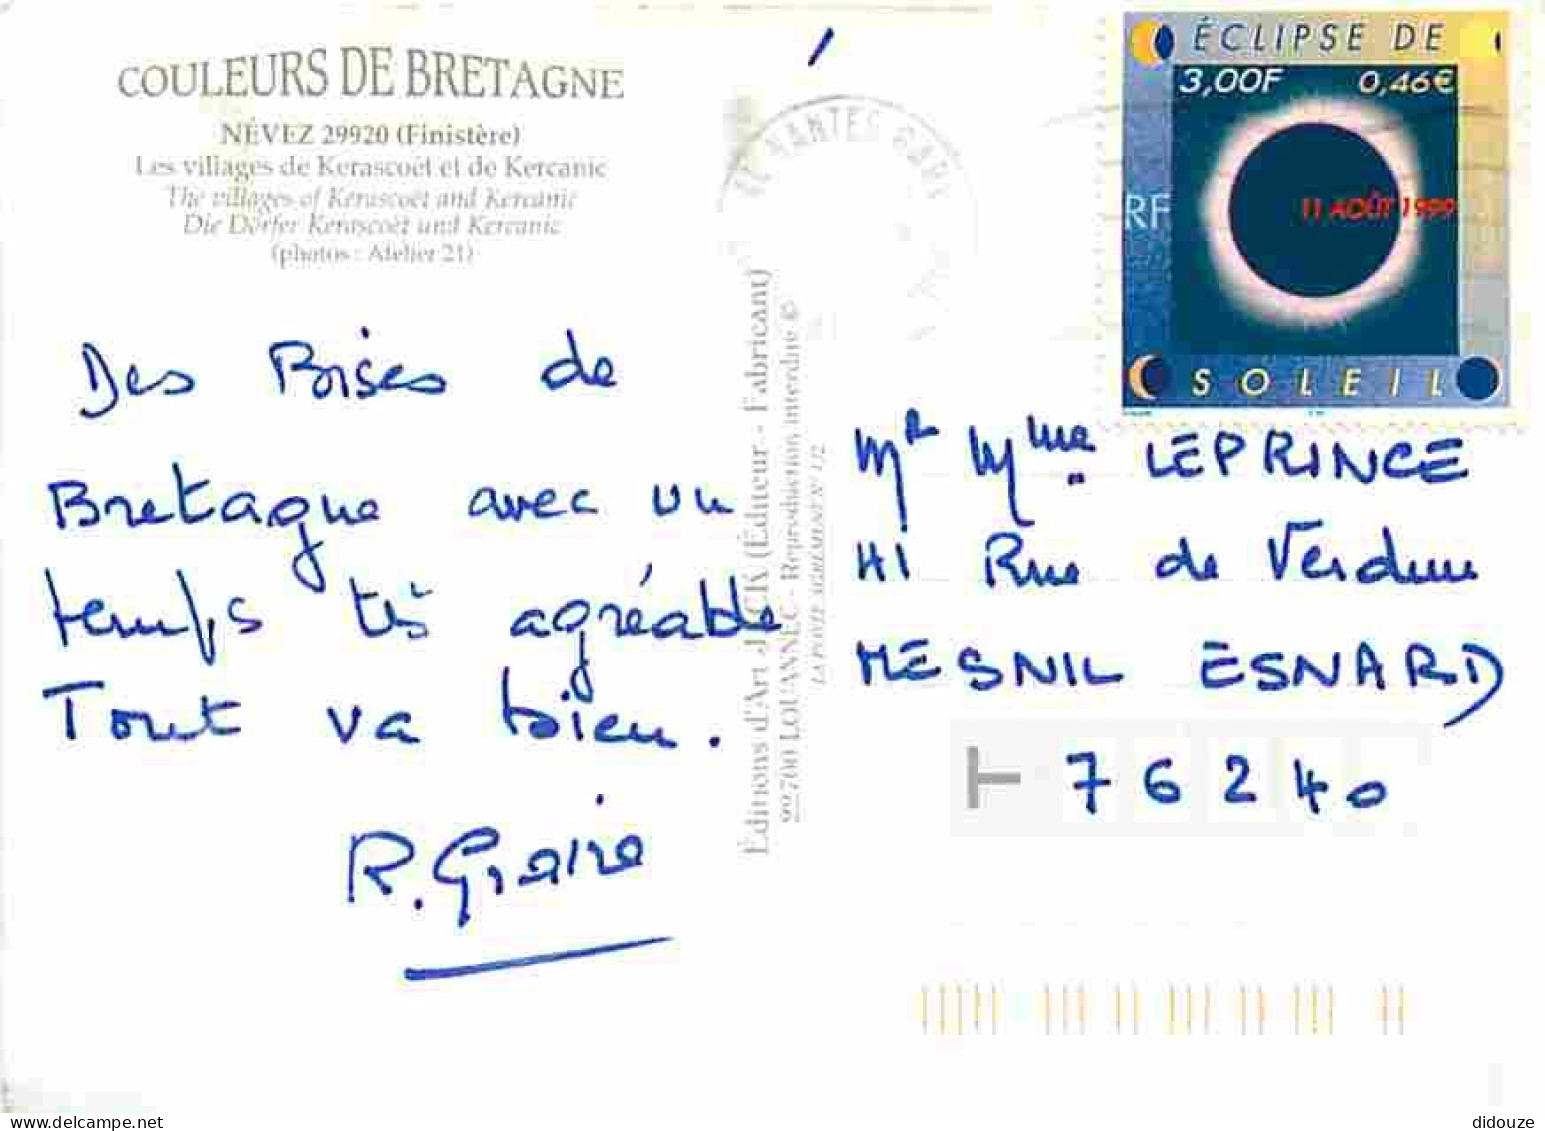 COULEURS DE BRETAGNE
NÉVEZ 29920 (Finistère)
Les villages de Kerascoët et de Kercanic
The villages of Kerascoët and Kercanic
Die Dörfer Kerascoët und Kercanic
(photos : Atelier 21)
Des Bises de
Bretagne avec un
temps très agréable
Tout va bien.
R. Graire
Éditions d'Art JACK (Éditeur - Fabricant)
LOUANNEC - Reproduction interdite ©
NANTES GARE
ÉCLIPSE DE
3,00F 0,46€
RF
11 AOÛT 1999
SOLEIL
Mr Mme LEPRINCE
41 Rue de Verdun
MESNIL ESNARD
76240
didouze